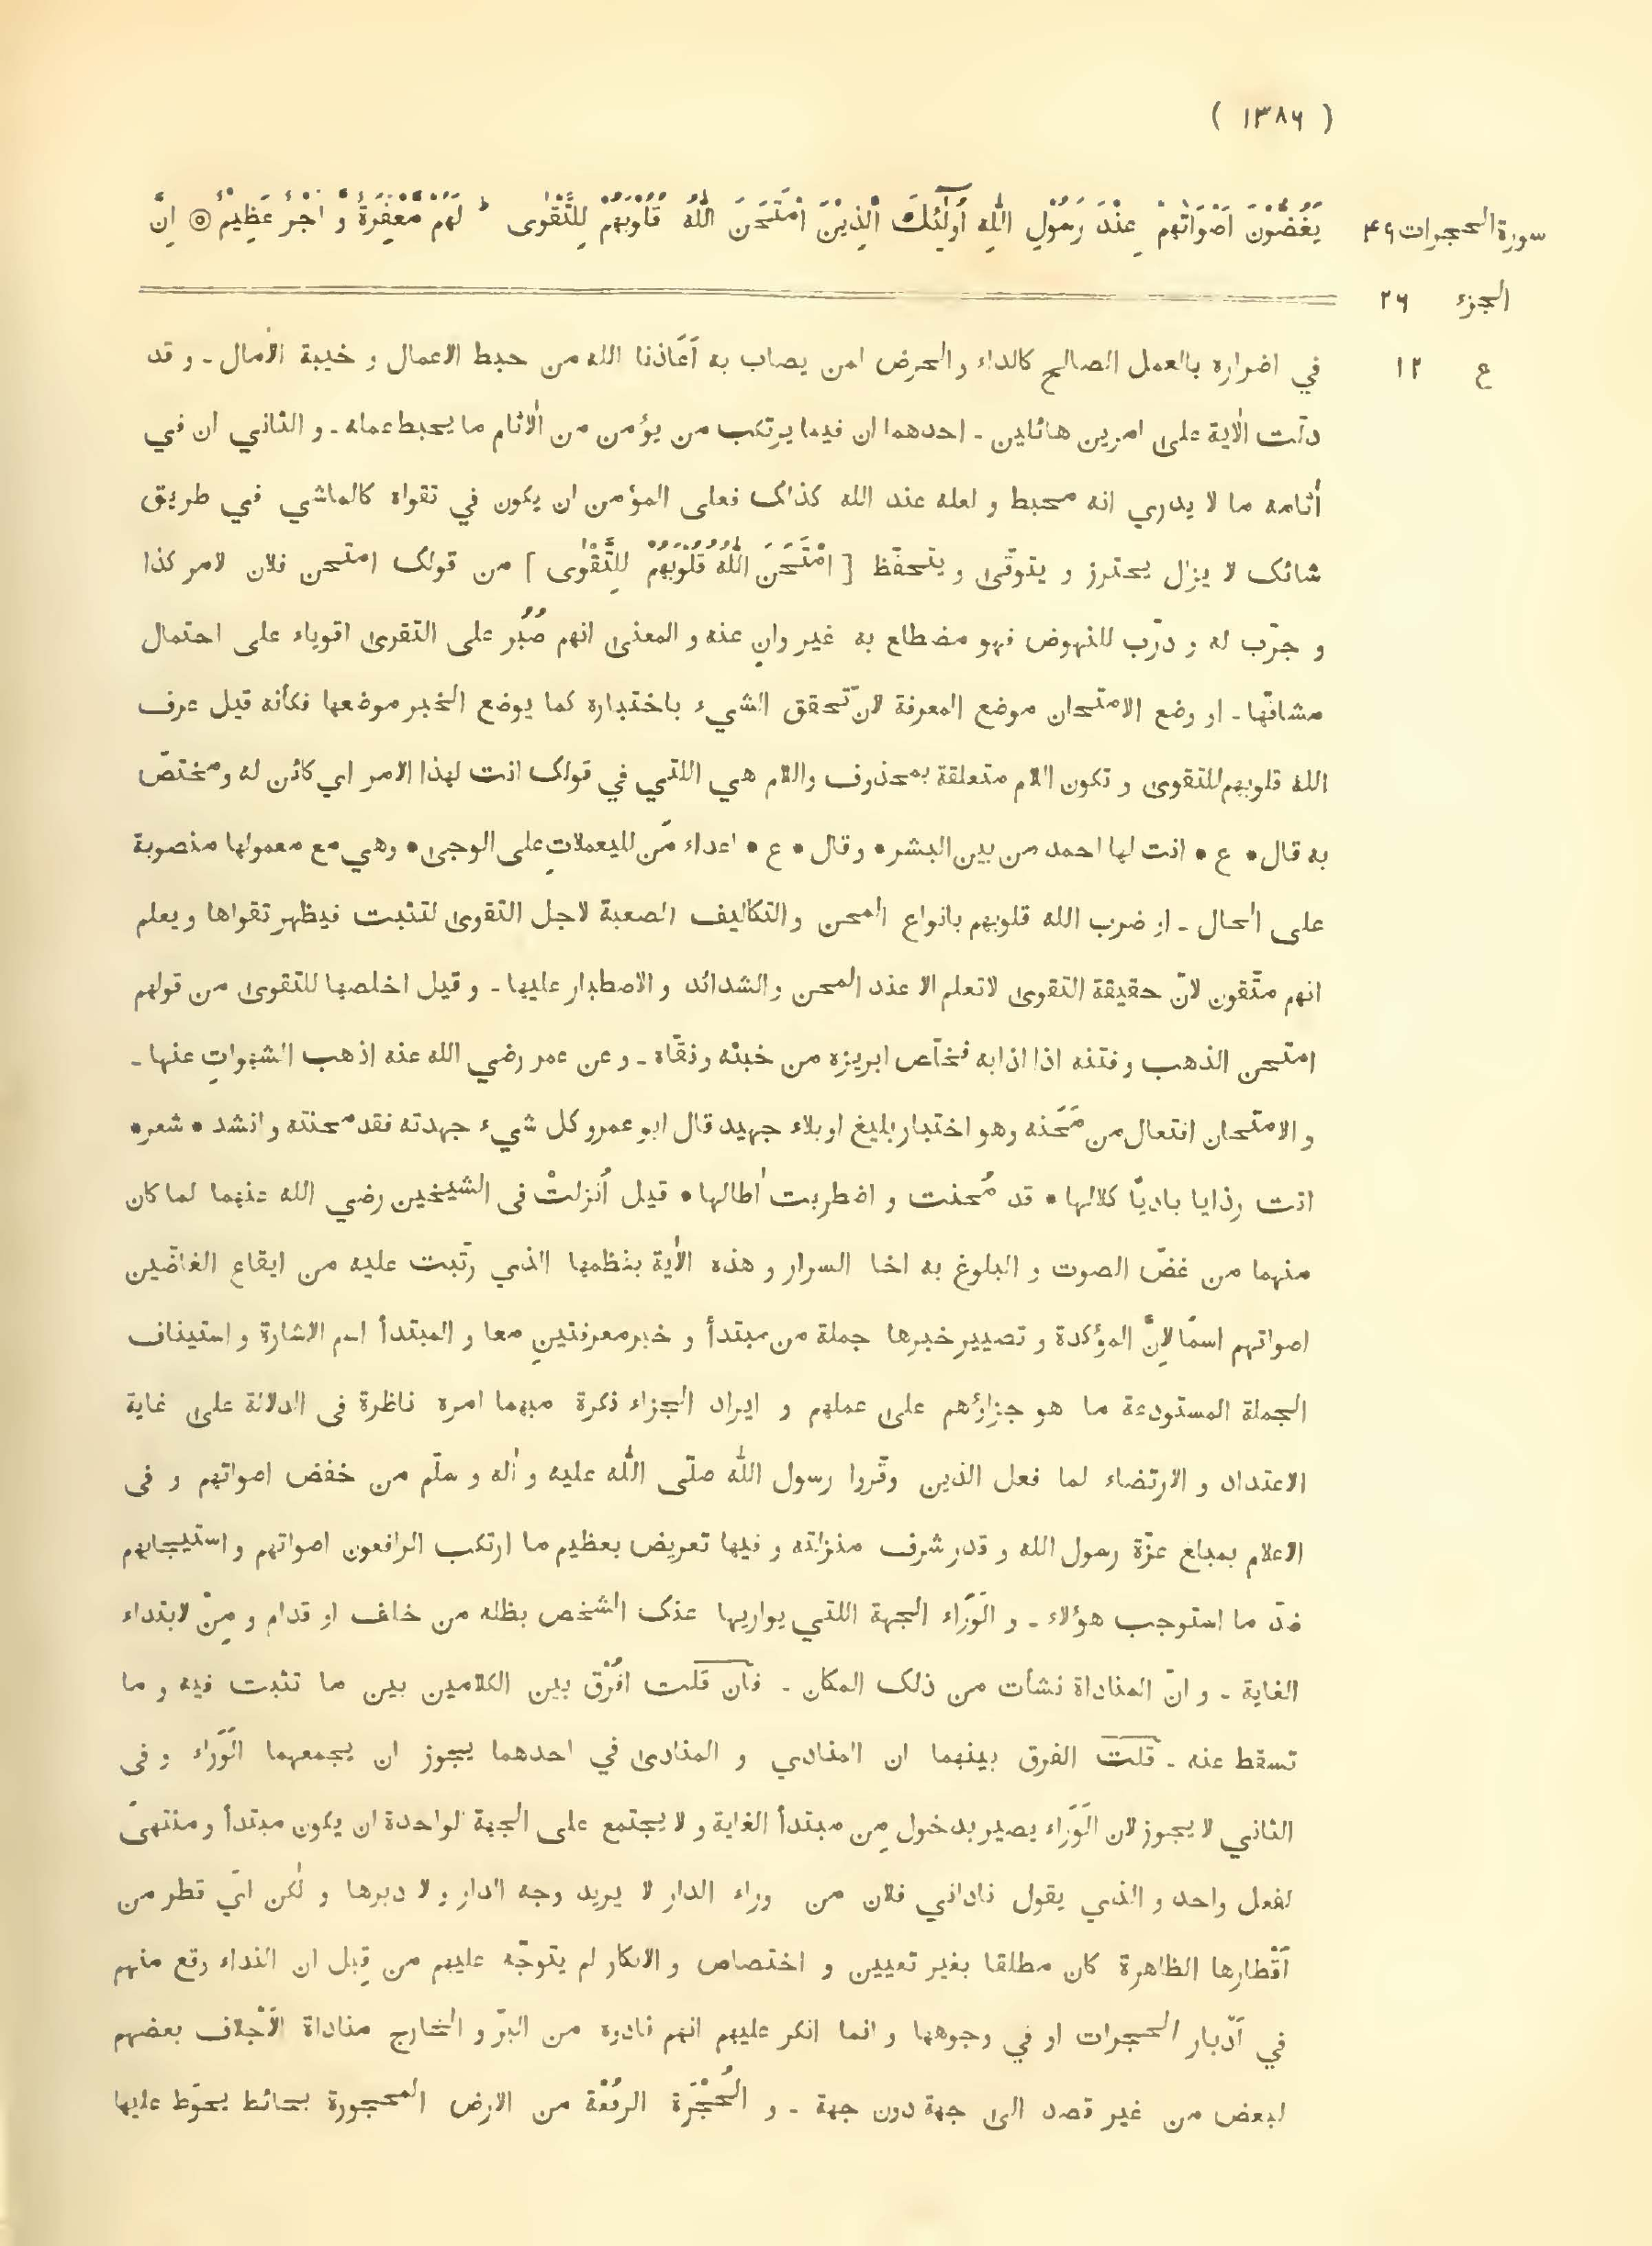 ( ١٣٨٦ )
سورة الحجرات ٤٩
الجزء ٢٦
ع ١٢
يَغُضُّوْنَ اَصْوَاتَهُمْ عِنْدَ رَسُوْلِ اللّٰهِ اُولٰٓئِكَ الَّذِيْنَ امْتَحَنَ اللّٰهُ قُلُوْبَهُمْ لِلتَّقْوٰى ط لَهُمْ مَّغْفِرَةٌ وَّ اَجْرٌ عَظِيْمٌ ◎ اِنَّ
في اضراره بالعمل الصالح كالداء والحرض لمن يصاب به أَعَاذنا الله من حبط الاعمال و خيبة الآمال ـ و قد
دلّت الآية على امرين هائلين ـ احدهما ان فيما يرتكب من يؤمن من الآثام ما يحبط عمله ـ و الثاني ان في
أثامه ما لا يدري انه محبط و لعله عند الله كذلك فعلى المؤمن ان يكون في تقواه كالماشي في طريق
شائك لا يزال يحترز و يتوقّى و يتحفّظ [ امْتَحَنَ اللّٰهُ قُلُوْبَهُمْ لِلتَّقْوٰى ] من قولك امتحن فلان لامر كذا
و جرّب له و درّب للنهوض فهو مضطلع به غير وانٍ عنه و المعنى انهم صُبُر على التقوى اقوياء على احتمال
مشاقّها ـ او وضع الامتحان موضع المعرفة لانّ تحقق الشيء باختباره كما يوضع الخبر موضعها فكأنه قيل عرف
الله قلوبهم للتقوى و تكون اللام متعلقة بمحذوف واللام هي اللتي في قولك انت لهذا الامر اي كائن له و مختصّ
به قال • ع • انت لها احمد من بين البشر • و قال • ع • اعداء مَن لليعملاتِ على الوجى • وهي مع معمولها منصوبة
على الحال ـ او ضرب الله قلوبهم بانواع المحن والتكاليف الصعبة لاجل التقوى لتثبت فيظهر تقواها و يعلم
انهم متّقون لانّ حقيقة التقوى لاتعلم الا عند المحن والشدائد و الاصطبار عليها ـ و قيل اخلصها للتقوى من قولهم
امتحن الذهب و فتنه اذا اذابه فخلّص ابريزه من خبثه ونقّاه ـ و عن عمر رضي الله عنه اذهب الشهواتِ عنها ـ
و الامتحان افتعال من مَحَنه وهو اختبار بليغ او بلاء جهيد قال ابو عمرو كل شيء جهدته فقد محنته و انشد • شعر •
اتت رذايا باديًا كلالها • قد مُحنت و اضطربت أٰطالها • قيل أُنزلتْ فى الشيخين رضي الله عنهما لما كان
منهما من غضّ الصوت و البلوغ به اخا السرار و هذه الآية بنظمها الذي رتّبت عليه من ايقاع الغاضّين
اصواتهم اسمًا لِانَّ المؤكدة و تصيير خبرها جملة من مبتدأ و خبر معرفتينِ معا و المبتدأ اسم الاشارة و استيناف
الجملة المستودعة ما هو جزاؤهم على عملهم و ايراد الجزاء نكرة مبهما امره ناظرة فى الدلالة على غاية
الاعتداد و الارتضاء لما فعل الذين وقّروا رسول اللّٰه صلّى اللّٰه عليه و أٰله و سلّم من خفض اصواتهم و فى
الاعلام بمبلغ عزّة رسول الله و قدر شرف منزلته و فيها تعريض بعظيم ما ارتكب الرافعون اصواتهم و استيجابهم
ضدّ ما استوجب هؤلاء ـ و الوَرَاء الجهة اللتي يواريها عنك الشخص بظله من خلف او قدام و مِنْ لابتداء
الغاية ـ و انّ المناداة نشأت من ذلك المكان ـ فان قلت افْرُق بين الكلامين بين ما تثبت فيه و ما
تسقط عنه ـ قلت الفرق بينهما ان المنادي و المنادى في احدهما يجوز ان يجمعهما الوَرَاء و فى
الثاني لا يجوز لان الوَرَاء يصير بدخول مِن مبتدأ الغاية و لا يجتمع على الجهة الواحدة ان يكون مبتدأ و منتهىً
لفعل واحد و الذي يقول ناداني فلان من وراء الدار لا يريد وجه الدار و لا دبرها و لٰكن ايّ قطر من
أَقْطارها الظاهرة كان مطلقا بغير تعيين و اختصاص و الانكار لم يتوجّه عليهم من قِبل ان النداء وقع منهم
في أَدْبار الحجرات او في وجوهها و انما انكر عليهم انهم نادوه من البرّ و الخارج مناداة الأَجْلاف بعضهم
لبعض من غير قصد الى جهة دون جهة ـ و الحُجْرَة الرقُعْة من الارض المحجورة بحائط يحوّط عليها